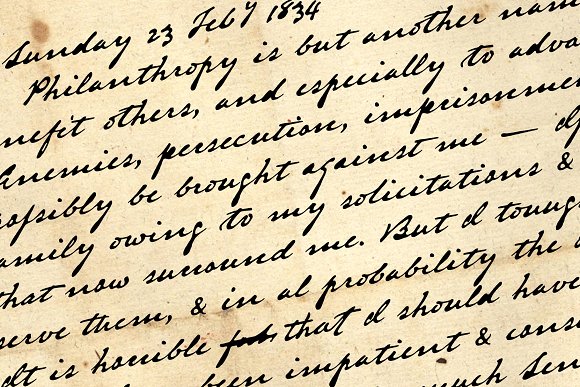 Sunday 23 Feby 1834
Philanthropy is but another nam
nefit others, and especially to adva
Enemies, persecution, imprisonme
possibly be brought against me —
amily owing to my solicitations &
that now surround me. But I
serve them, & in al probability the
It is horrible that I should have
been impatient & cons
much